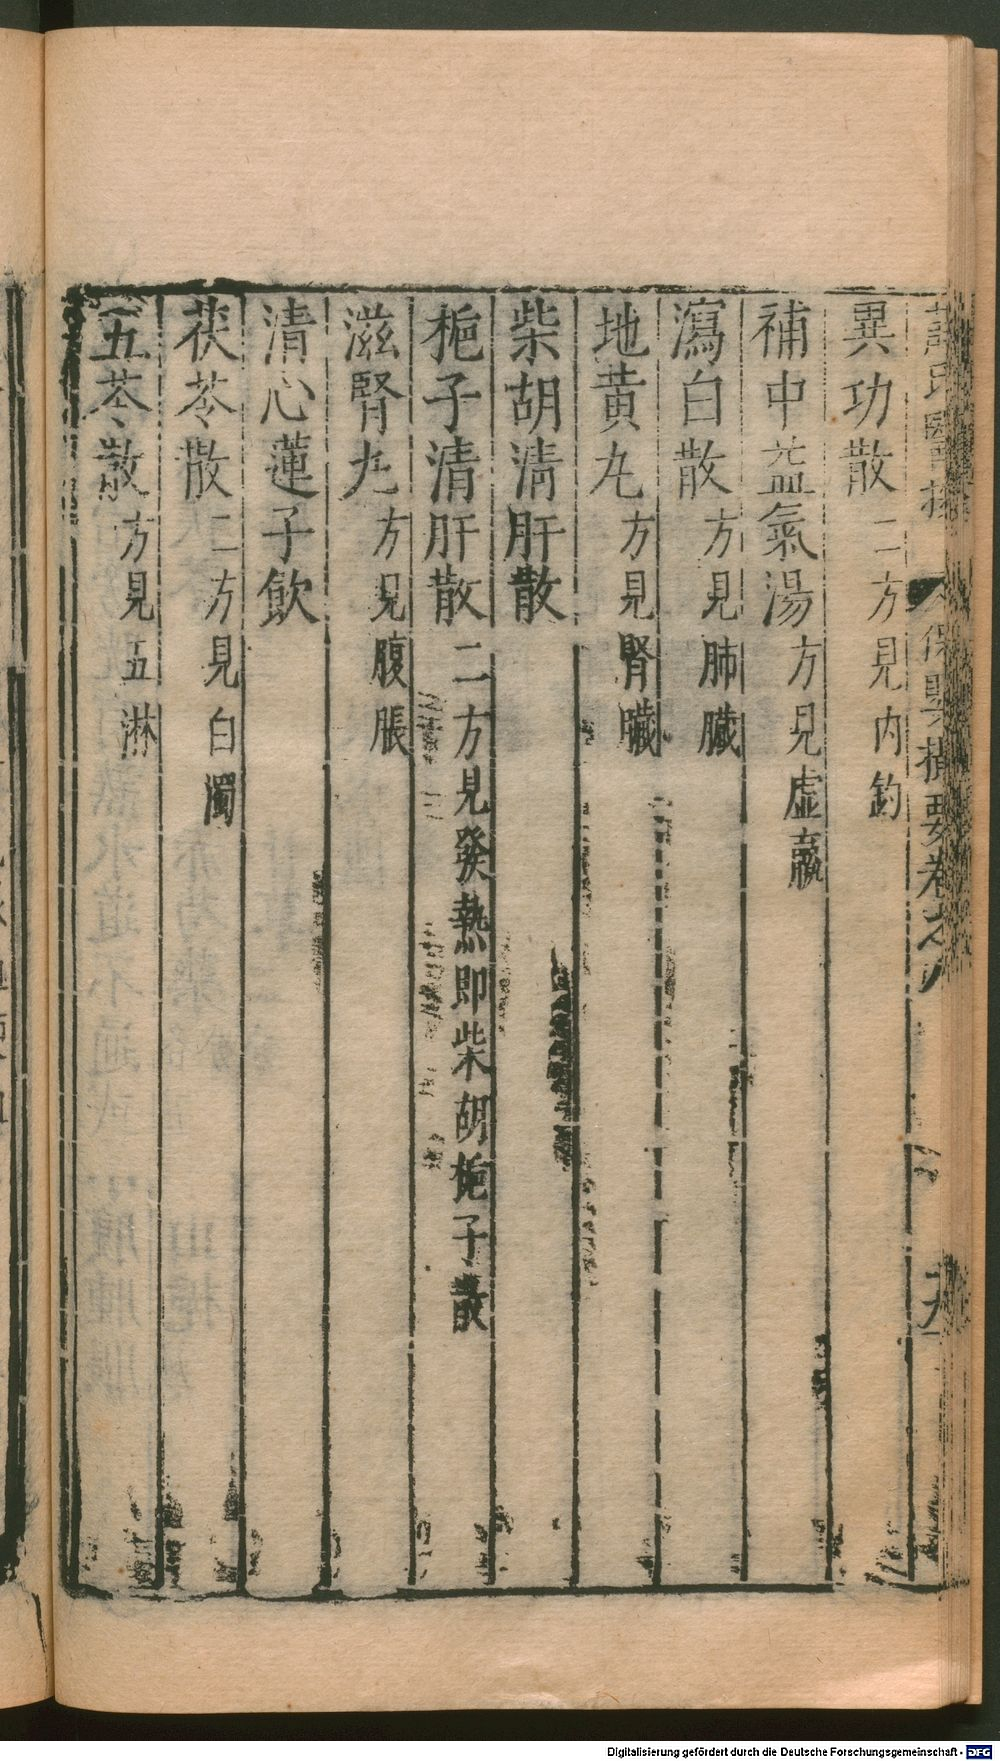 保嬰撮要卷之八
異功散二方見内釣
補中益氣湯方見虛羸
瀉白散方見肺臟
地黃丸方見腎臟
柴胡清肝散
梔子清肝散二方見發熱即柴胡梔子散
滋腎丸方見腹脹
清心蓮子飲
茯苓散二方見白濁
五苓散方見五淋
Digitalisierung gefördert durch die Deutsche Forschungsgemeinschaft - DFG